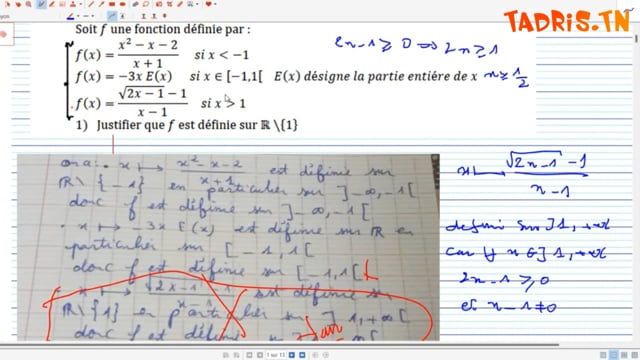 TADRIS.TN
Soit f une fonction définie par :
f(x) = (x² − x − 2)/(x + 1) si x < −1
f(x) = −3x E(x) si x ∈ [−1,1[ E(x) désigne la partie entiére de x
f(x) = (√(2x − 1) − 1)/(x − 1) si x > 1
1) Justifier que f est définie sur ℝ \{1}
2x-1 ≥ 0 ⟹ 2x ≥ 1
x ≥ 1/2
on a: x ↦ (x²-x-2)/(x+1) est définie sur
ℝ \ {-1} en particulier sur ]-∞,-1[
donc f est définie sur ]-∞,-1[
• x ↦ -3x E(x) est définie sur ℝ en
particulier sur [-1,1[
donc f est définie sur [-1,1[
• x ↦ (√(2x-1) - 1)/(x-1) est définie sur
ℝ\{1} en particulier sur ]1,+∞[
donc f est défini sur
x ↦ (√(2x-1) -1)/(x-1)
défini sur ]1,+∞
car ∀ x ∈ ]1,+∞
2x-1 ≥ 0
et x-1 ≠ 0
1 sur 13